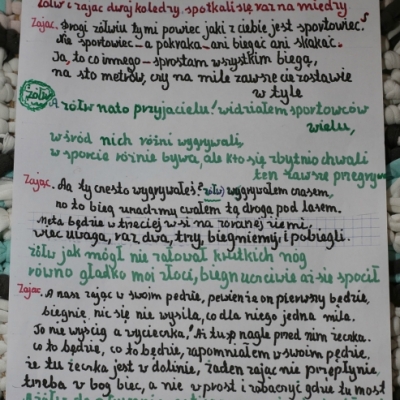 Żółw i zając dwaj koledzy, spotkali się raz na miedzy
Zając. Drogi żółwiu ty mi powiec jaki z ciebie jest sportowiec?
Nie sportowiec - a pokraka - ani biegać ani skakać.
Ja, to co innego - sprostam wszystkim biegą,
na sto metrów, czy na mile zawsze cie zostawie
w tyle
żółw
A żółw na to przyjacielu! widziałem sportowców
wielu,
wśród nich różni wygrywali,
w sporcie różnie bywa, ale kto się zbytnio chwali
ten zawsze przegrywa
Zając. Aa ty często wygrywałeś? żółw wygrywałem czasem,
no to bieg urządzmy cwałem tą drogą pod lasem.
Meta będzie w trzeciej wsi na zoranej ziemi,
więc uwaga, raz, dwa, trzy, biegniemy; i pobiegli.
żółw jak mógł nie żałował krutkich nóg
równo gładko moi złoci, biegn uczciwie aż się spocił
Zając. A nasz zając w swoim pędzie, pewien że on pierwszy będzie,
biegnie, nic się nie wysila, co dla niego jedna mila.
To nie wyścig a wycieczka! Ai tu nagle przed nim rzeczka.
co to będzie, co to będzie, zapomniałem w swoim pędzie,
że tu rzeczka jest w dolinie, żaden zając nie przepłynie,
trzeba w bog biec, a nie w prost i zobaczyć gdzie tu most